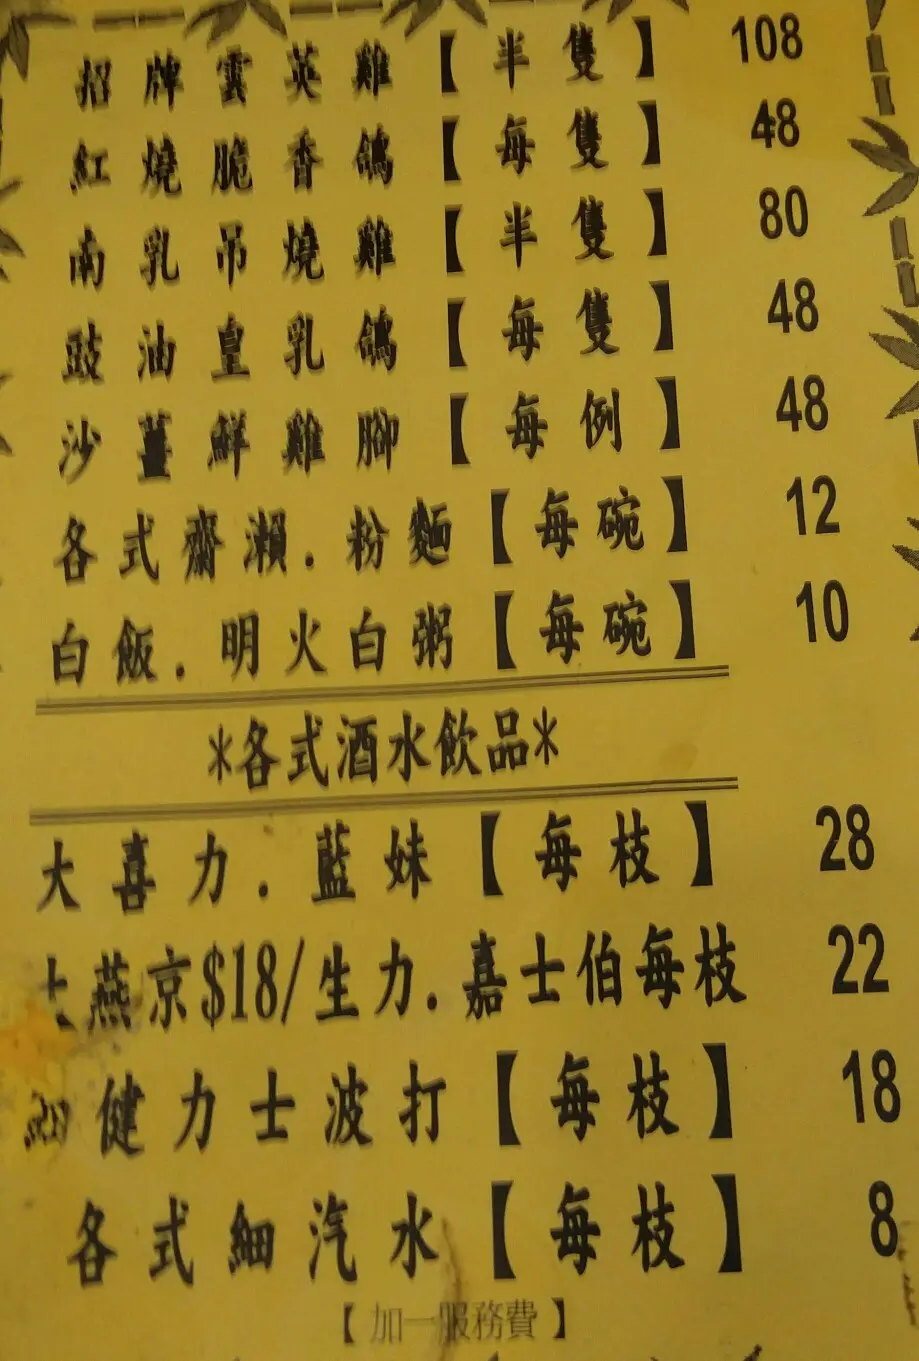 招牌雲英雞【半隻】 108
紅燒脆香鴿【每隻】 48
南乳吊燒雞【半隻】 80
豉油皇乳鴿【每隻】 48
沙薑鮮雞腳【每例】 48
各式齋瀨.粉麵【每碗】 12
白飯.明火白粥【每碗】 10
*各式酒水飲品*
大喜力.藍妹【每枝】 28
燕京$18/生力.嘉士伯每枝 22
細健力士波打【每枝】 18
各式細汽水【每枝】 8
【加一服務費】